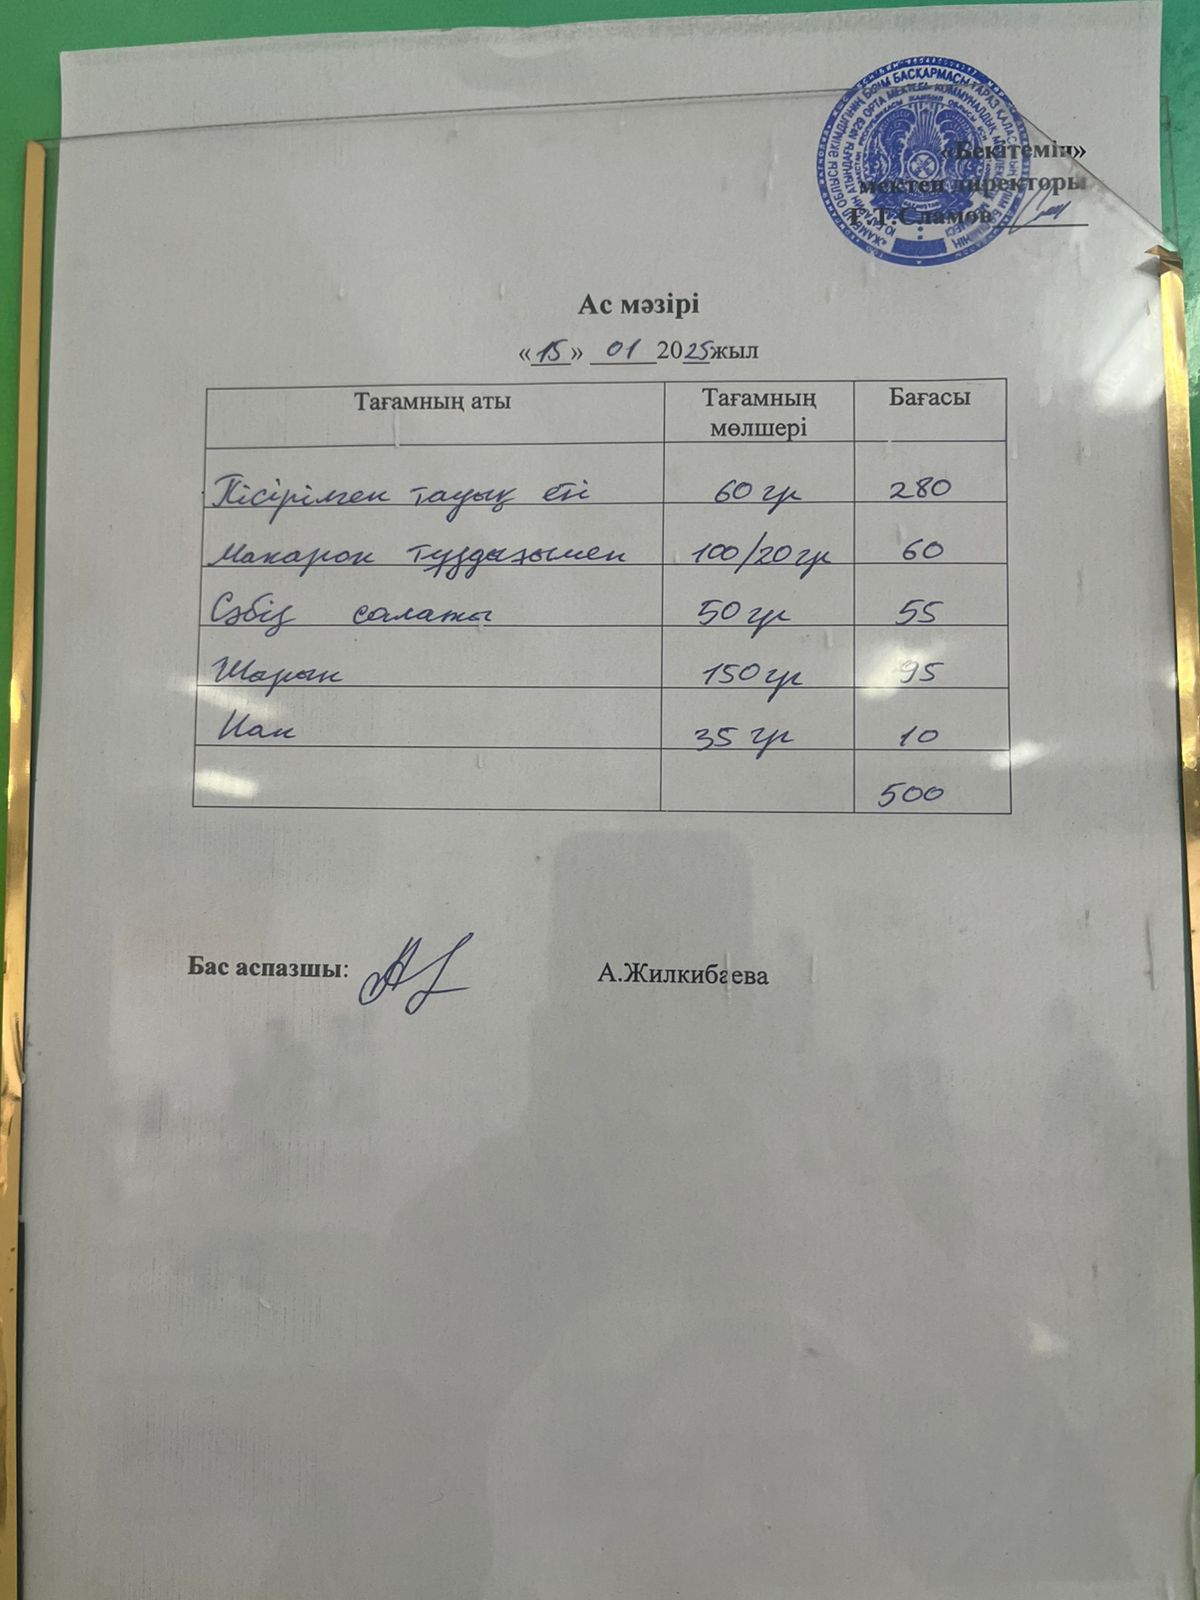 «Бекітемін»
мектеп директоры
Ғ.Т.Сламов
Ас мәзірі
«15» 01 2025жыл
Тағамның аты Тағамның мөлшері Бағасы
Пісірілген тауық еті 60 гр 280
Макарон тұздығымен 100/20 гр 60
Сәбіз салаты 50 гр 55
Шырын 150 гр 95
Нан 35 гр 10
500
Бас аспазшы: А.Жилкибаева